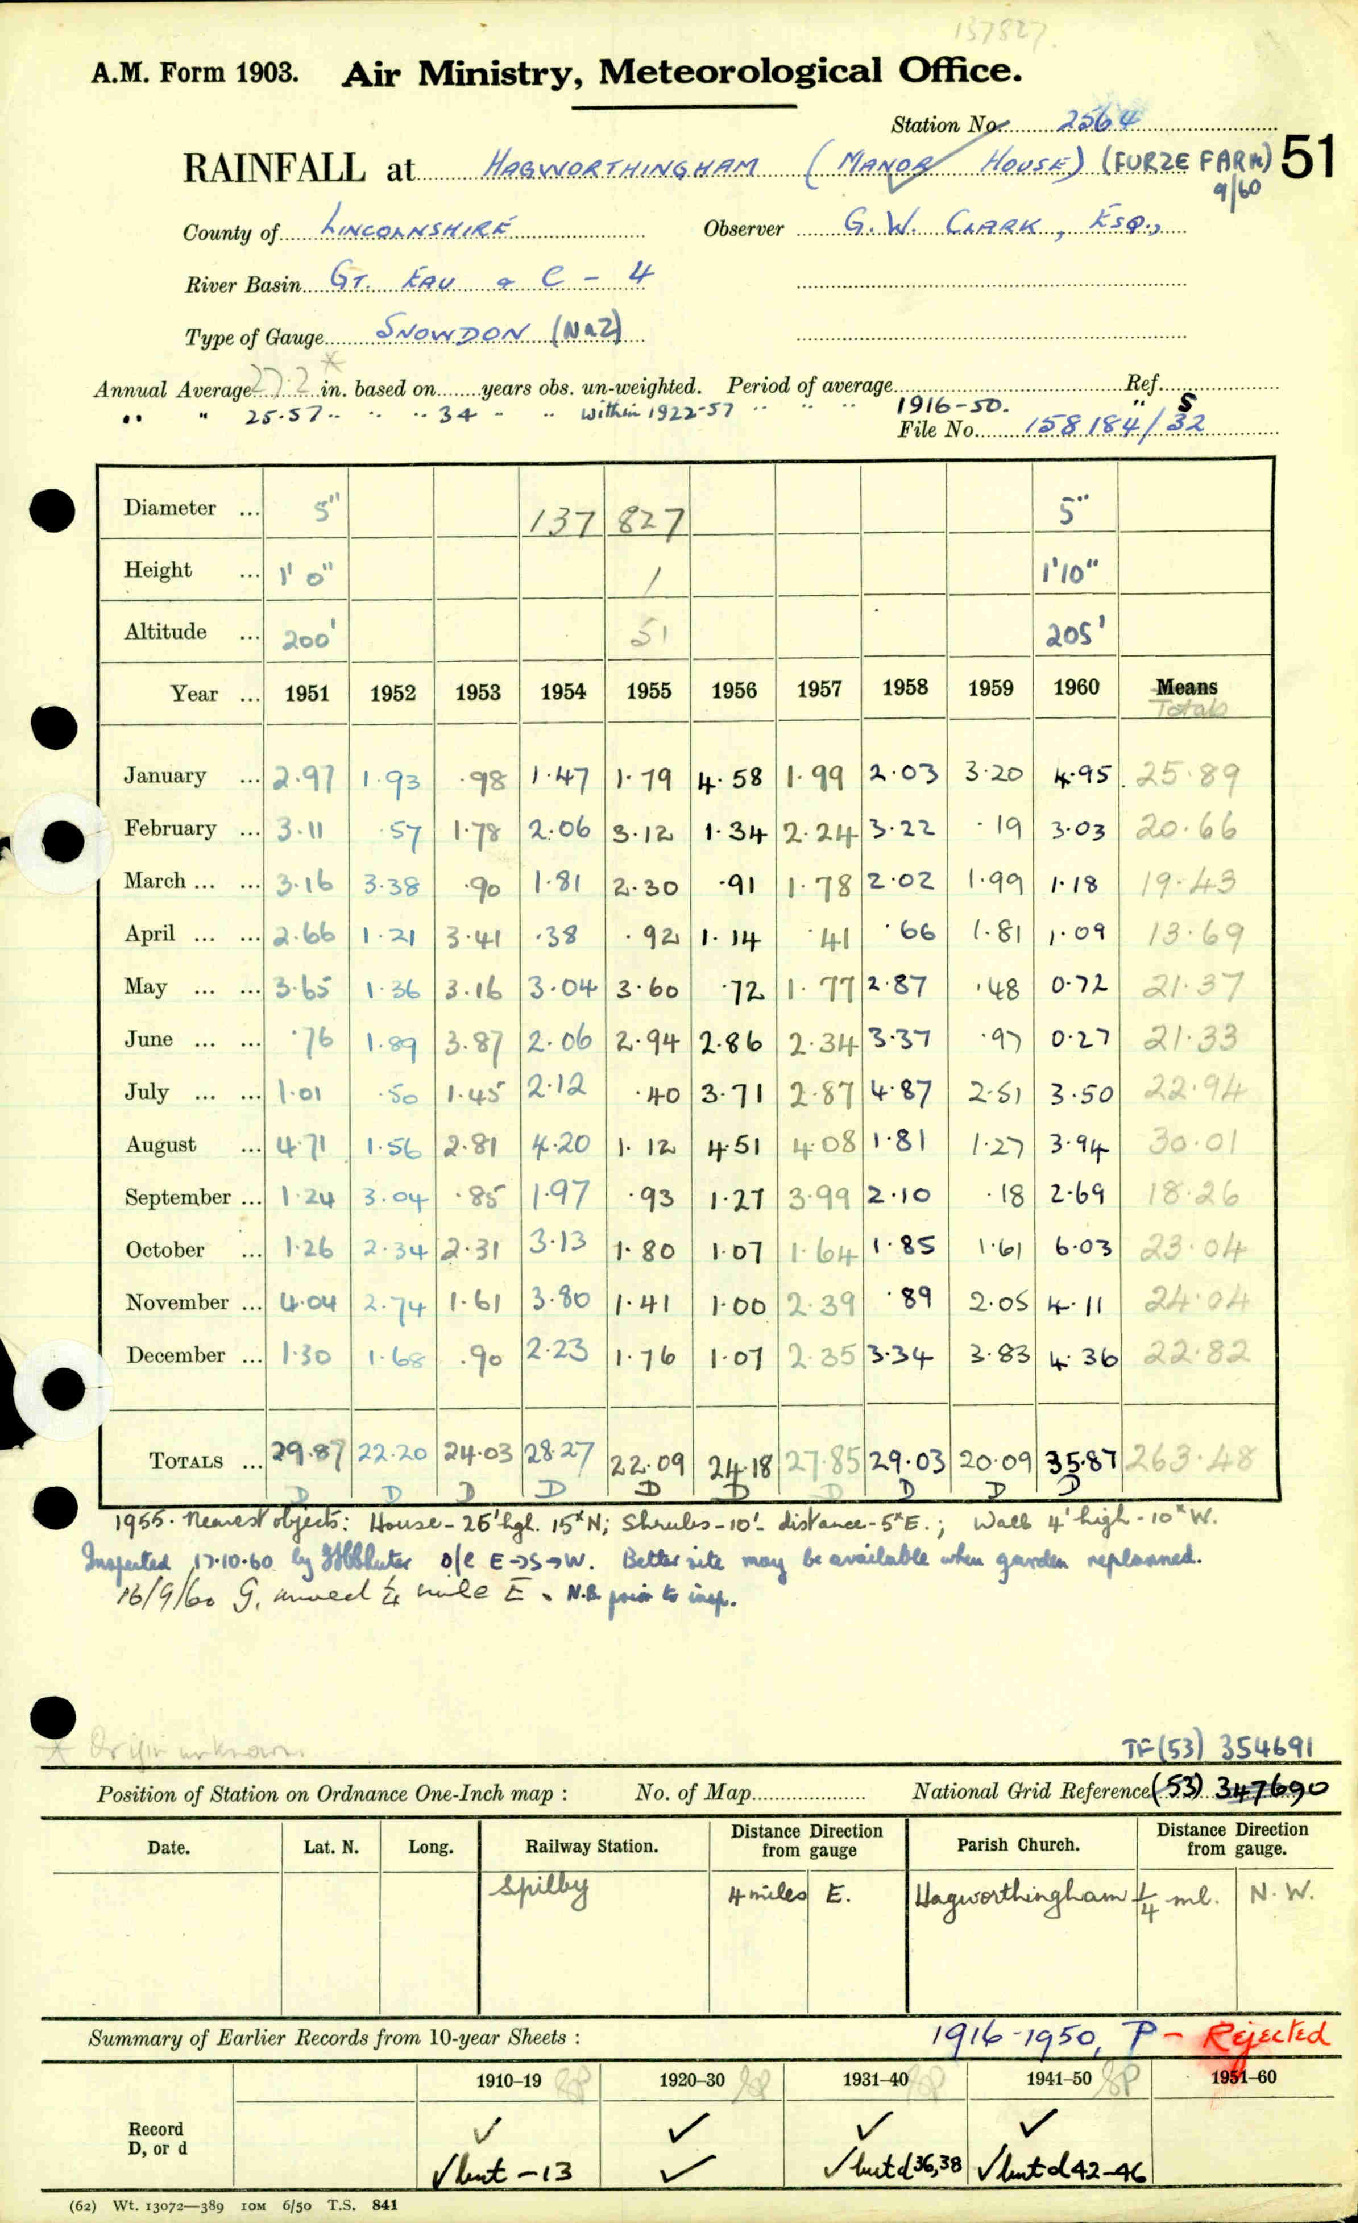 137827.
A.M. Form 1903. Air Ministry, Meteorological Office.
Station No. 2564
RAINFALL at HAGWORTHINGHAM (MANOR HOUSE) (FURZE FARM) 51
9/60
County of LINCOLNSHIRE Observer G. W. CLARK, ESQ.,
River Basin GT. EAU & C - 4
Type of Gauge SNOWDON (Na2)
Annual Average 27.2* in. based on years obs. un-weighted. Period of average Ref.
" " 25.57 " " " 34 " " within 1922-57 " " " 1916-50. " S
File No. 158184/32
Diameter ... 5" 137 827 5"
Height ... 1' 0" 1 1'10"
Altitude ... 200' 51 205'
Year ... 1951 1952 1953 1954 1955 1956 1957 1958 1959 1960 Means
Totals
January ... 2.97 1.93 .98 1.47 1.79 4.58 1.99 2.03 3.20 4.95 25.89
February ... 3.11 .57 1.78 2.06 3.12 1.34 2.24 3.22 .19 3.03 20.66
March ... ... 3.16 3.38 .90 1.81 2.30 .91 1.78 2.02 1.99 1.18 19.43
April ... ... 2.66 1.21 3.41 .38 .92 1.14 .41 .66 1.81 1.09 13.69
May ... ... 3.65 1.36 3.16 3.04 3.60 .72 1.77 2.87 .48 0.72 21.37
June ... ... .76 1.89 3.87 2.06 2.94 2.86 2.34 3.37 .97 0.27 21.33
July ... ... 1.01 .50 1.45 2.12 .40 3.71 2.87 4.87 2.51 3.50 22.94
August ... 4.71 1.56 2.81 4.20 1.12 4.51 4.08 1.81 1.27 3.94 30.01
September ... 1.24 3.04 .85 1.97 .93 1.27 3.99 2.10 .18 2.69 18.26
October ... 1.26 2.34 2.31 3.13 1.80 1.07 1.64 1.85 1.61 6.03 23.04
November ... 4.04 2.74 1.61 3.80 1.41 1.00 2.39 .89 2.05 4.11 24.04
December ... 1.30 1.68 .90 2.23 1.76 1.07 2.35 3.34 3.83 4.36 22.82
TOTALS ... 29.87 22.20 24.03 28.27 22.09 24.18 27.85 29.03 20.09 35.87 263.48
D D D D D D D D D D
1955. Nearest objects: House - 25' hgt. 15ˣ N; Shrubs - 10' - distance - 5ˣ E.; Wall 4' high - 10ˣ W.
Inspected 17.10.60 by o/e E→S→W. Better site may be available when garden replanned.
16/9/60 G. moved ¼ mile E. N.R. prior to insp.
* Origin unknown.
TF(53) 354691
Position of Station on Ordnance One-Inch map : No. of Map National Grid Reference (53) 347690
Date. Lat. N. Long. Railway Station. Distance Direction from gauge Parish Church. Distance Direction from gauge.
Spilby 4 miles E. Hagworthingham ¼ ml. N. W.
Summary of Earlier Records from 10-year Sheets : 1916-1950, P - Rejected
1910–19 1920–30 1931–40 1941–50 1951–60
Record ✓ ✓ ✓ ✓
D, or d ✓ but -13 ✓ ✓ but d 36,38 ✓ but d 42-46
(62) Wt. 13072—389 10M 6/50 T.S. 841